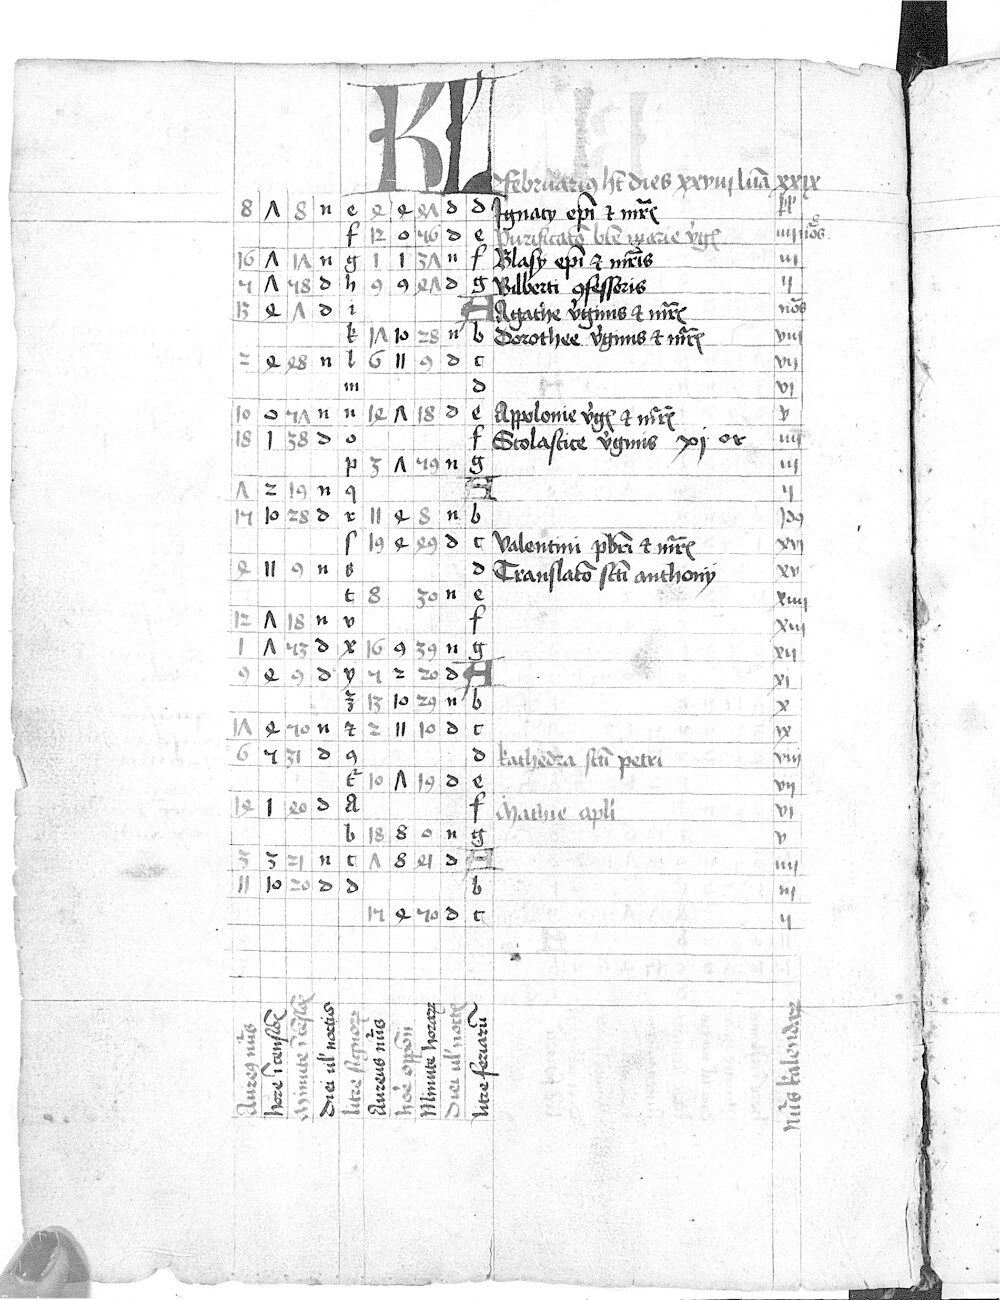 KL
februarius ht dies xxviij luna xxix
8 Λ 8 n e e e eΛ d d Ignacy epi et mris kl
f 12 0 46 d e Purificato bte marie vgis iiij nos
16 Λ 1Λ n g 1 1 3Λ n f Blasy epi et mris iij
4 Λ 48 d h 9 9 eΛ d g Bilberti 9fessoris ij
13 e Λ d i A Agathe vginis et mris nos
k 1Λ 10 28 n b Dorothee vginis et mris viij
2 e e8 n l 6 11 9 d c vij
m d vi
10 0 4Λ n n 1e Λ 18 d e Appolonie vgis et mris v
18 1 38 d o f Scolastice vginis xj or iiij
p 3 Λ 49 n g iij
Λ 2 19 n q A ij
14 10 28 d r 11 e 8 n b id9
s 19 e e9 d c Valentini pbri et mris xvi
e 11 9 n d Translato scti anthonij xv
t 8 30 n e xiiij
12 Λ 18 n v f xiij
1 Λ 43 d x 16 9 39 n g xij
9 e 9 d y 4 2 20 d A xi
z 13 10 29 n b x
1Λ e 40 n z 2 11 10 d c ix
6 4 31 d 9 d kathedra scti petri viij
10 Λ 19 d e vij
1e 1 e0 d a f Mathie apli vi
b 18 8 0 n g v
3 3 21 n c Λ 8 e1 d A iiij
11 10 20 d d b iij
14 e 40 d c ij
Aureus nus
hore
minute
diei ul' noctis
litre signorum
Aureus nus
hore opponis
Minute horarum
Diei ul' noctis
litre feriarum
nus kalendarum